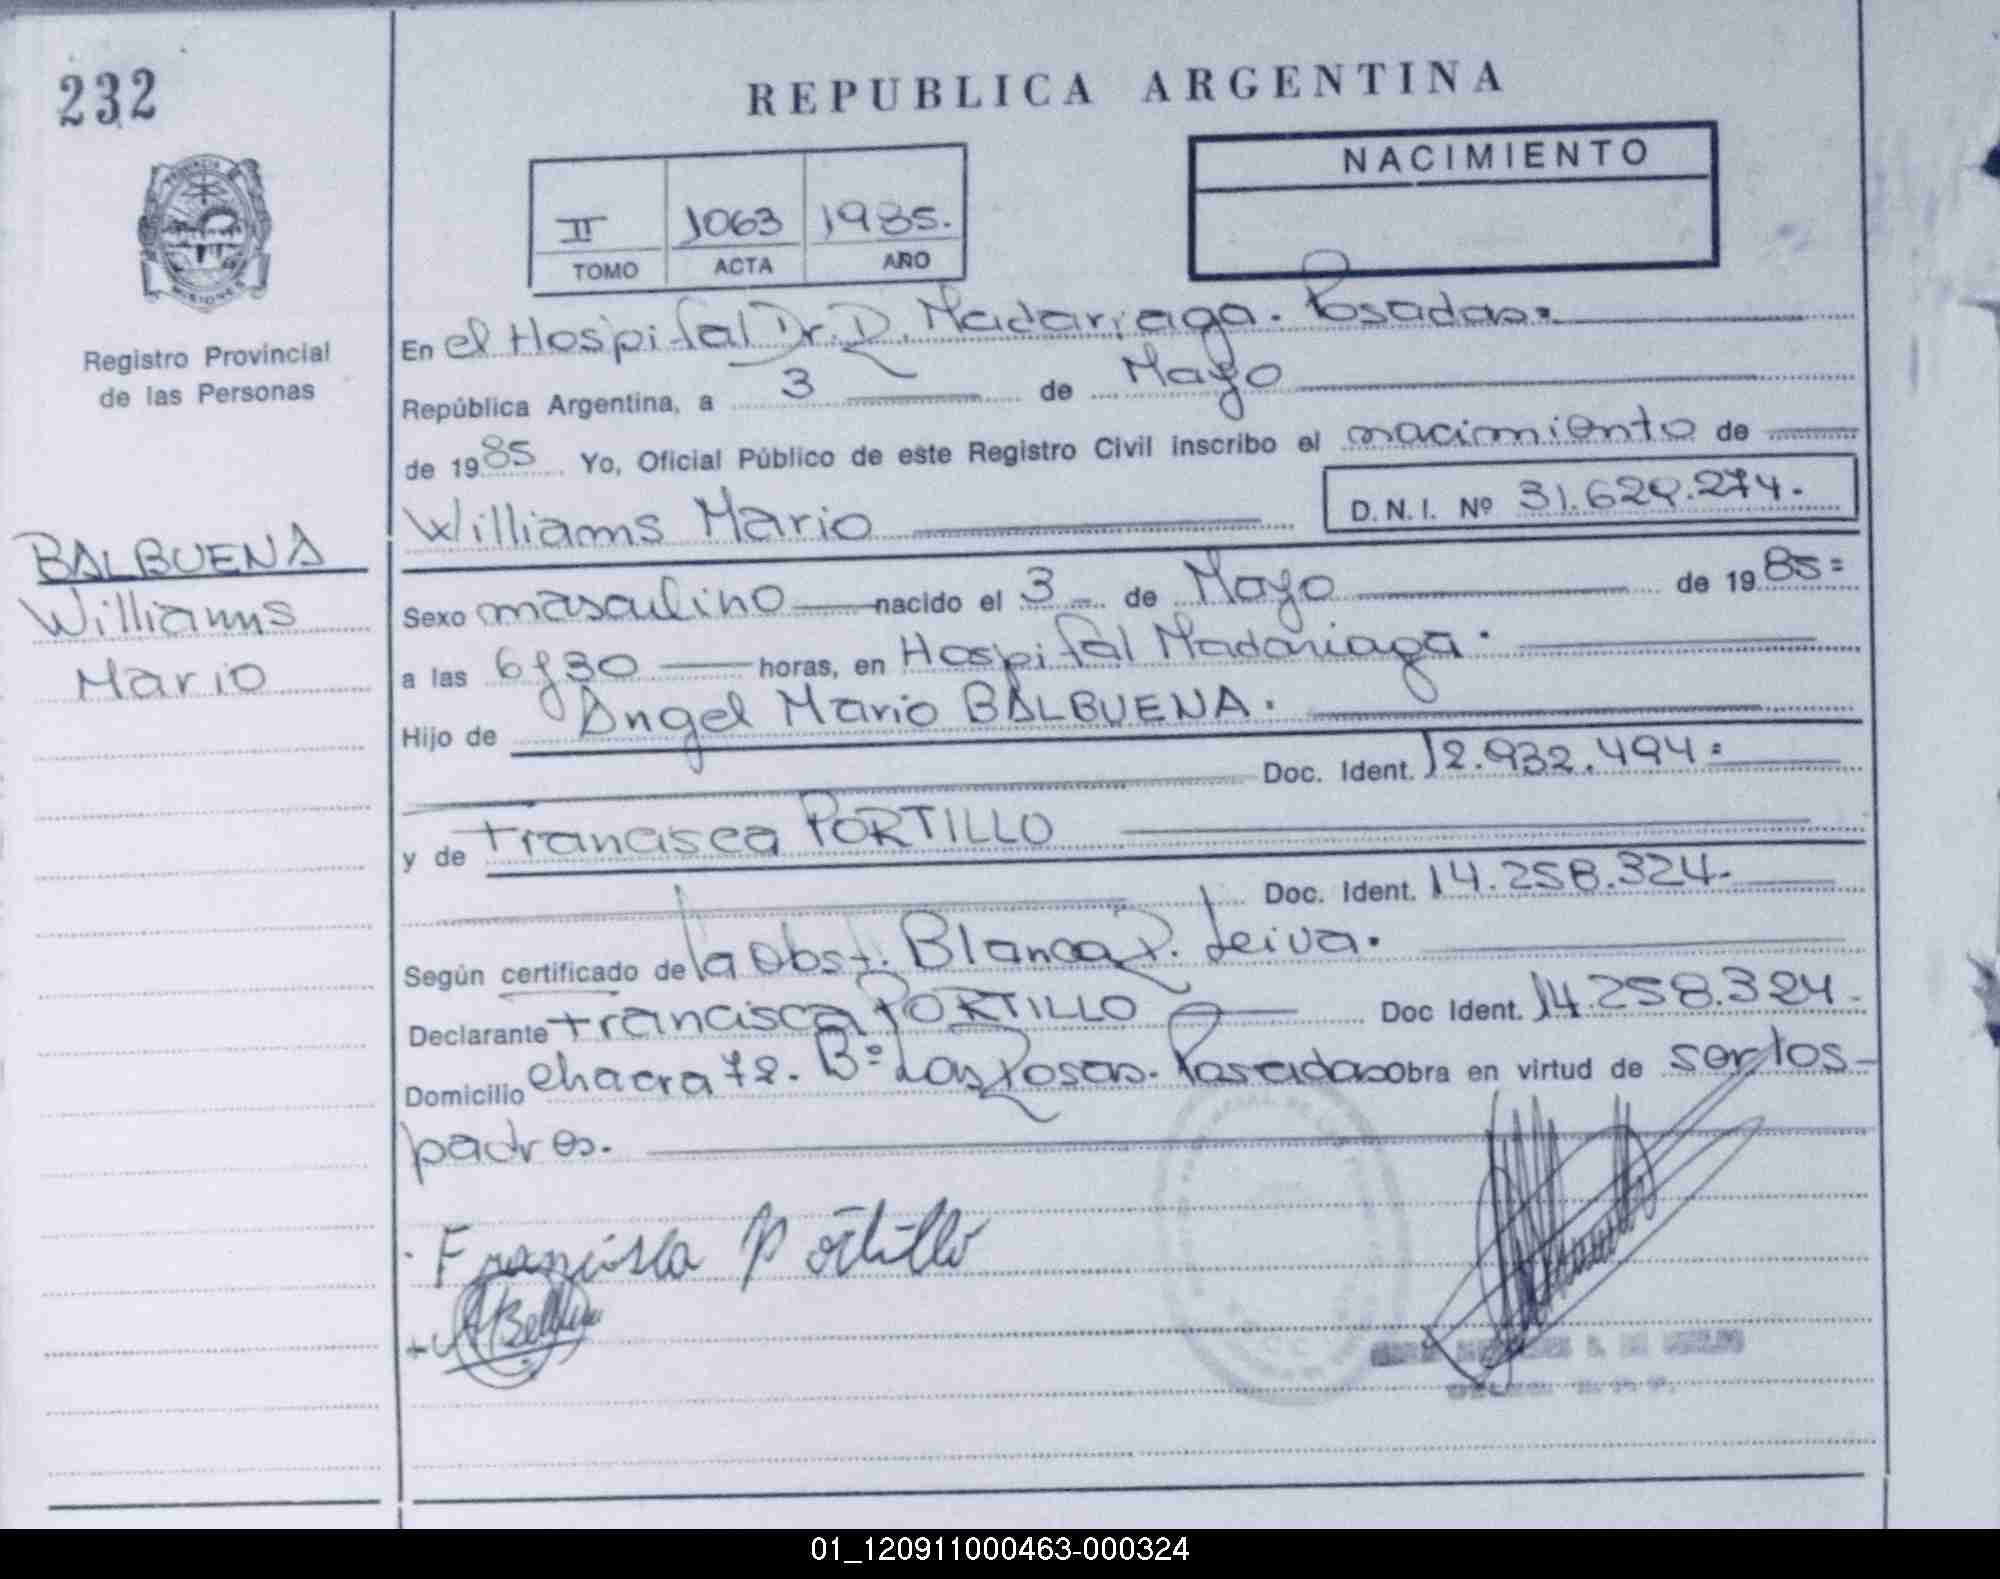 232
REPUBLICA ARGENTINA
NACIMIENTO
II 1063 1985.
TOMO ACTA AÑO
PROVINCIA
MISIONES
Registro Provincial
de las Personas
BALBUENA
Williams
Mario
En el Hospital Dr. R. Madariaga. Posadas=
República Argentina, a 3 de Mayo
de 1985 Yo, Oficial Público de este Registro Civil inscribo el nacimiento de
Williams Mario D.N.I. Nº 31.629.274.
Sexo masculino nacido el 3 de Mayo de 1985=
a las 6y30 horas, en Hospital Madariaga.
Hijo de Angel Mario BALBUENA.
Doc. Ident. 12.932.494=
y de Francisca PORTILLO
Doc. Ident. 14.258.324.
Según certificado de la obst. Blanca R. Leiva.
Declarante Francisca PORTILLO Doc Ident. 14.258.324.
Domicilio Chacra 72. Bº Las Rosas. Posadas obra en virtud de ser los
padres.
Francisca Portillo
01_120911000463-000324